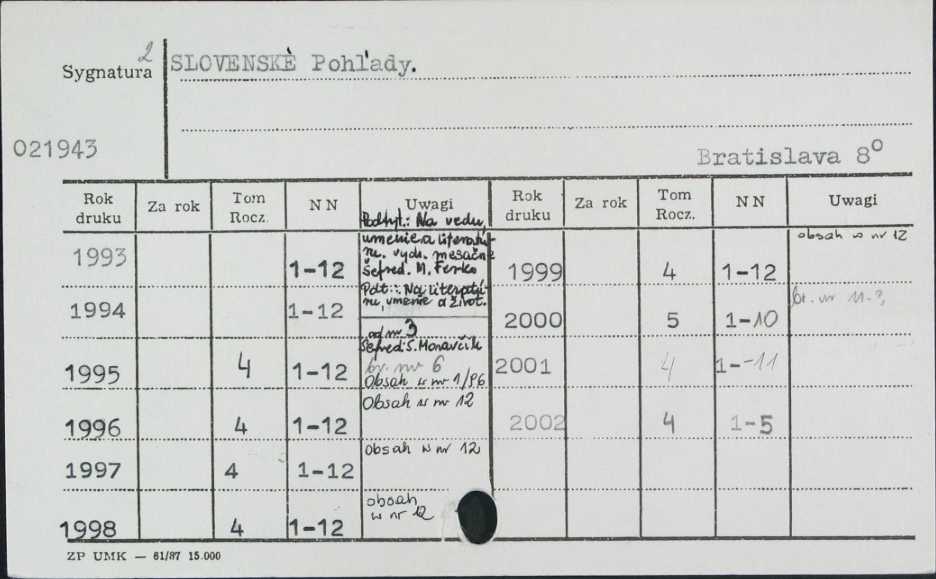 2
Sygnatura
SLOVENSKÈ Pohl'ady.
021943
Bratislava 8⁰
Rok druku Za rok Tom Rocz. NN Uwagi Rok druku Za rok Tom Rocz. NN Uwagi
1993 1-12 Podtyt.: Na vedu,
umenie a literatú-
ru. vyd. mesačne
šefred. M. Ferko
1994 1-12 Pdt.: Na literatú-
ru, umenie a život.
od nr 3
1995 4 1-12 Šefred: S. Moravčík
br. nr 6
Obsah w nr 1/96
1996 4 1-12 Obsah w nr 12
1997 4 1-12 obsah w nr 12
1998 4 1-12 obsah
w nr 12
1999 4 1-12 obsah w nr 12
2000 5 1-10 br. nr 11-?
2001 4 1--11
2002 4 1-5
ZP UMK — 61/87 15.000